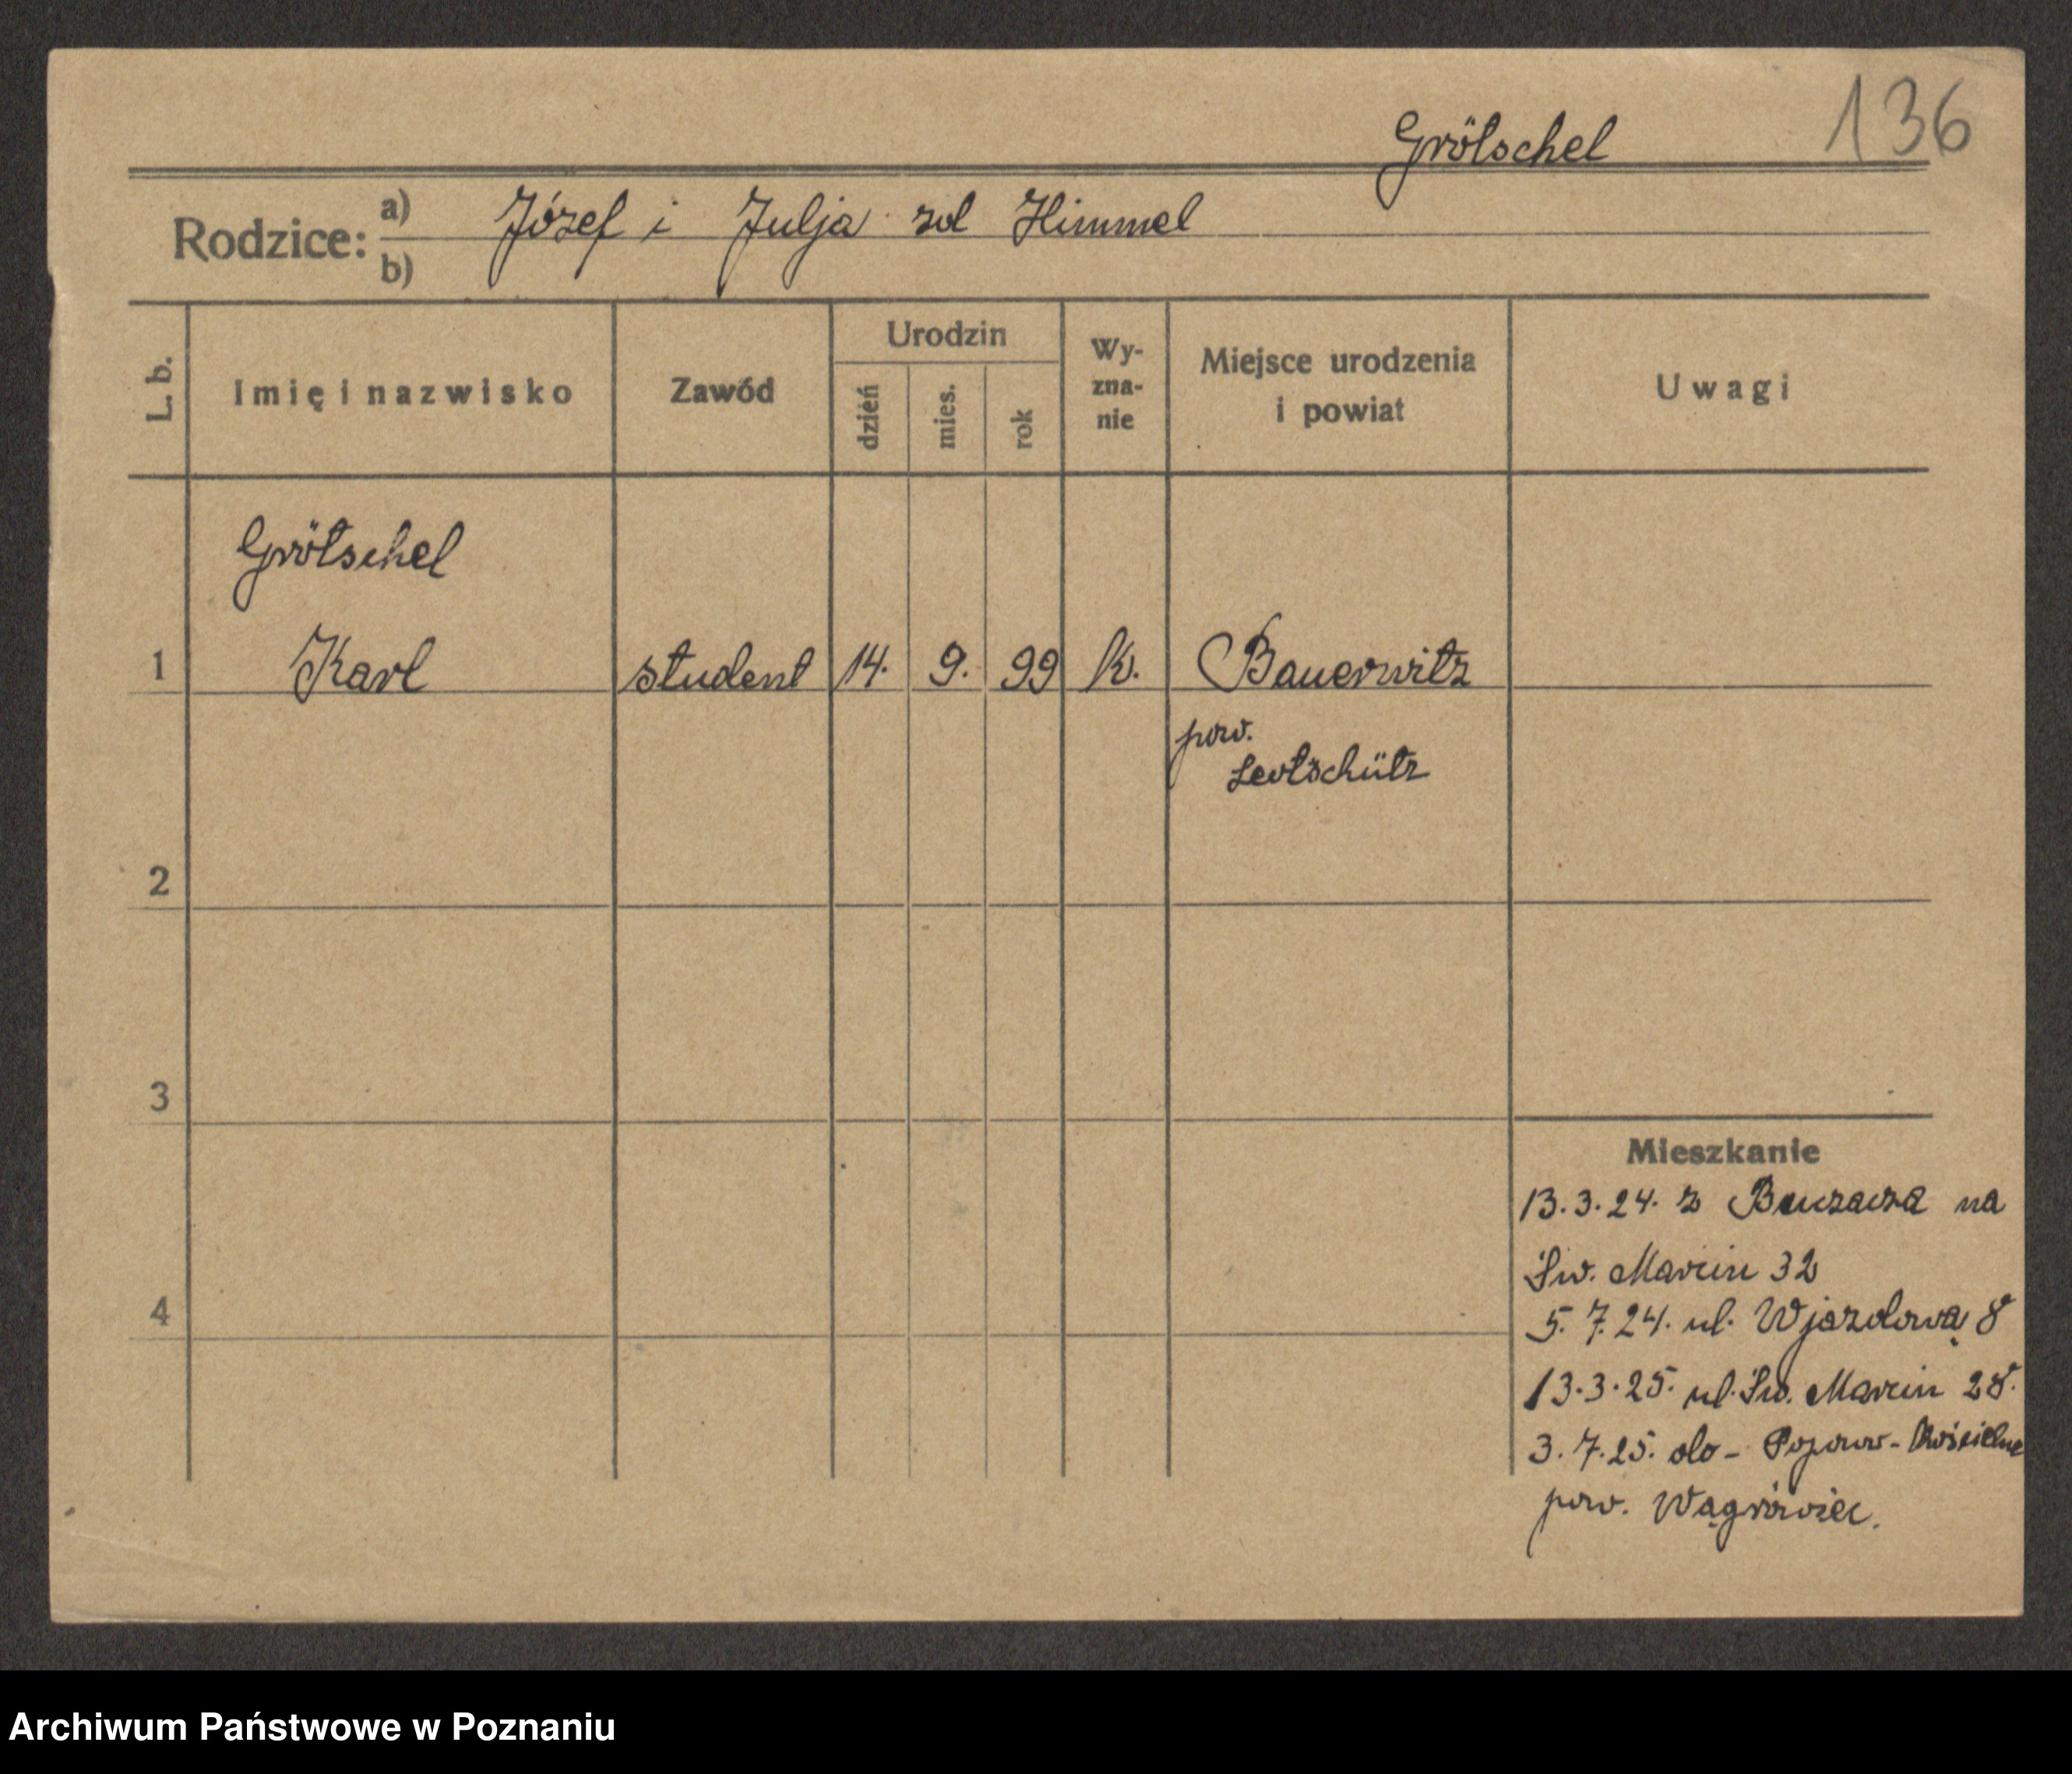 136
Grötschel
Rodzice: a) Józef i Julja zd Himmel
b)
L. b.
Imię i nazwisko
Zawód
Urodzin
dzień
mies.
rok
Wy-
zna-
nie
Miejsce urodzenia
i powiat
Uwagi
Grötschel
1 Karl student 14. 9. 99 k. Bauerwitz
pow.
Leobschütz
2
3
4
Mieszkanie
13.3.24. z Buczacza na
Św. Marcin 32
5.7.24. ul. Wjazdowa 8
13.3.25. ul. Św. Marcin 28.
3.7.25. do - Popowo-Kościelne
pow. Wągrówiec.
Archiwum Państwowe w Poznaniu